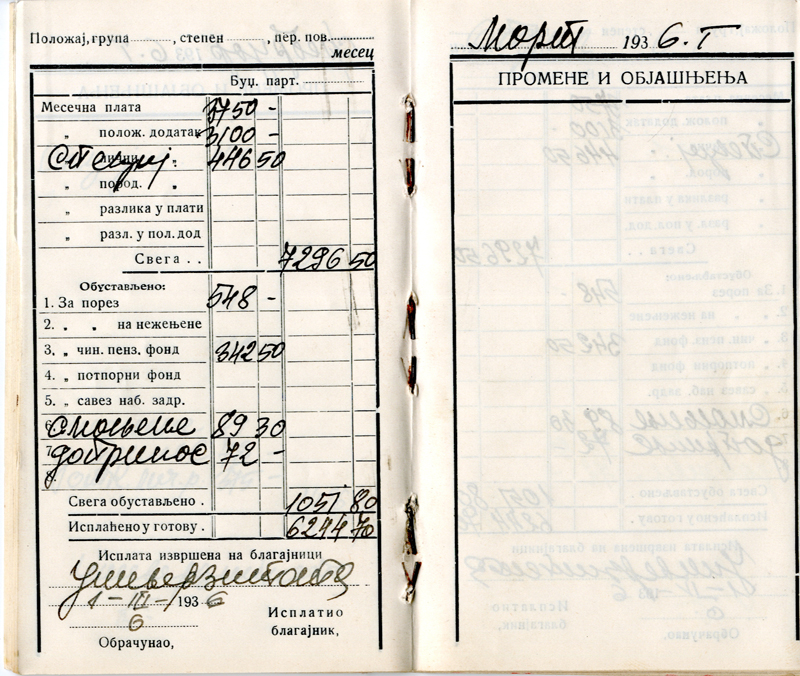 Положај, група , степен , пер. пов.
месец
Буџ. парт.
Месечна плата 3750 -
„ полож. додатак 3100 -
„ лични „ 446 50
„ пород. „
„ разлика у плати
„ разл. у пол. дод
Свега . . 7296 50
Обустављено:
1. За порез 548 -
2. „ „ на нежењене
3. „ чин. пенз. фонд 342 50
4. „ потпорни фонд
5. „ савез наб. задр.
6 89 30
7 допринос 72 -
Свега обустављено . 1051 80
Исплаћено у готову . 6244 70
Исплата извршена на благајници
Универзитета
1 - III - 1936
6
Исплатио
благајник,
Обрачунао,
Март 1936. г.
ПРОМЕНЕ И ОБЈАШЊЕЊА